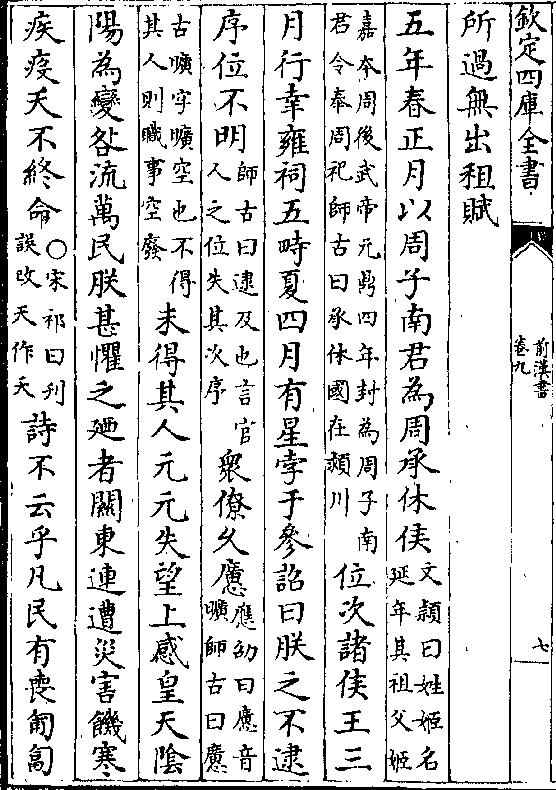 欽定四庫全書
前漢書
卷九
七
所過無出租賦
五年春正月以周子南君為周承休侯文穎曰姓姬名延年其祖父姬
嘉本周後武帝元鼎四年封為周子南君令奉周祀師古曰承休國在潁川位次諸侯王三
月行幸雍祠五畤夏四月有星孛于參詔曰朕之不逮
序位不明師古曰逮及也言官人之位失其次序眾僚久㢡應劭曰㢡音曠師古曰㢡
古曠字曠空也不得其人則職事空廢未得其人元元失望上感皇天陰
陽為變咎流萬民朕甚懼之廼者關東連遭災害饑寒
疾疫夭不終命○宋祁曰刊誤改天作夭詩不云乎凡民有喪匍匐